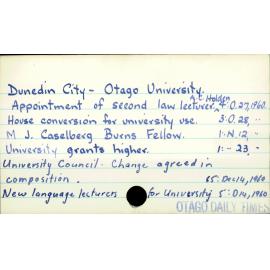 Dunedin City - Otago University.
A.C. Holden
Appointment of second law lecturer. 4: O. 27, 1960
House conversion for university use. 3. O. 28, "
M J. Caselberg Burns Fellow. 1: N. 12, "
University grants higher. 1: - 23, "
University Council - Change agreed in
composition. 65: Dec 14, 1960.
New language lecturers for University 5: D 14, 1960
OTAGO DAILY TIMES